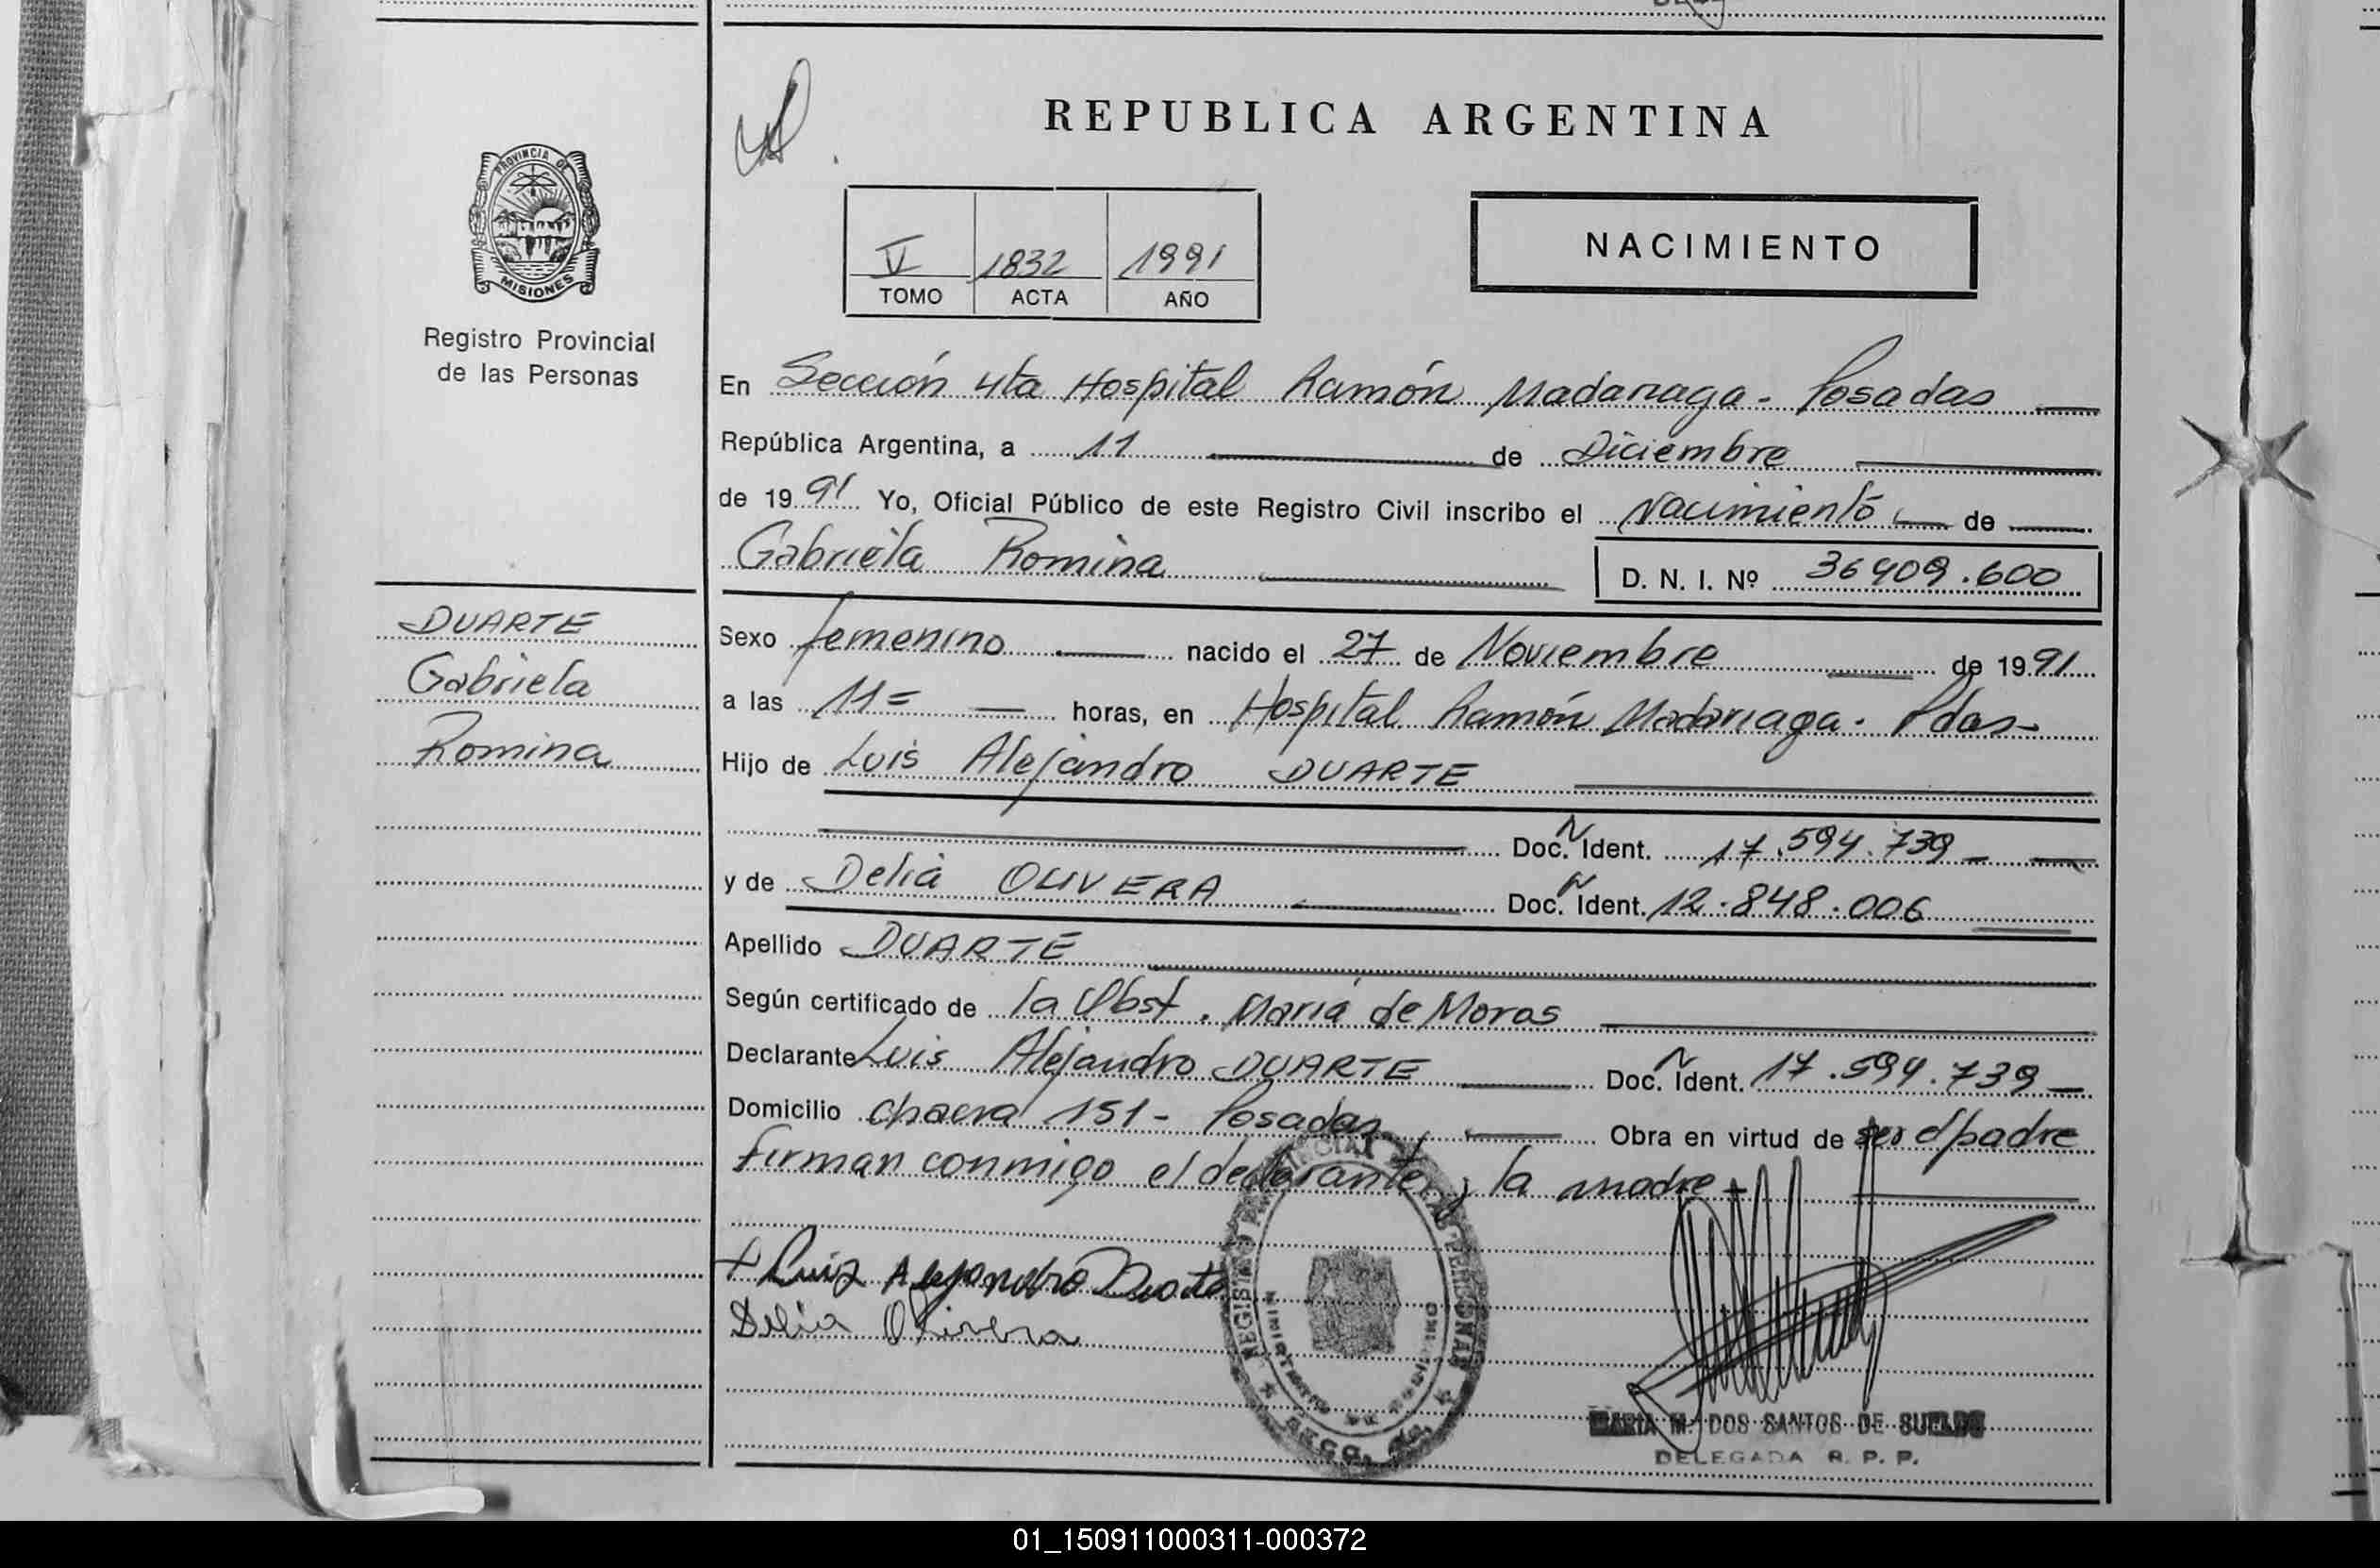 REPUBLICA ARGENTINA
PROVINCIA DE
MISIONES
Registro Provincial
de las Personas
V 1832 1991
TOMO ACTA AÑO
NACIMIENTO
En Sección 4ta Hospital Ramón Madariaga - Posadas
República Argentina, a 11 de Diciembre
de 1991 Yo, Oficial Público de este Registro Civil inscribo el Nacimiento de
Gabriela Romina
D. N. I. Nº 36409.600
DUARTE
Gabriela
Romina
Sexo femenino nacido el 27 de Noviembre de 1991
a las 11= horas, en Hospital Ramón Madariaga - Pdas-
Hijo de Luis Alejandro DUARTE
Doc. N Ident. 17.594.739-
y de Delia OLIVERA Doc. N Ident. 12.848.006
Apellido DUARTE
Según certificado de la Obst. María de Moras
Declarante Luis Alejandro DUARTE Doc. N Ident. 17.594.739-
Domicilio chacra 151- Posadas Obra en virtud de ser el padre
Firman conmigo el declarante y la madre-
+ Luis Alejandro Duarte
Delia Olivera
REGISTRO PROVINCIAL DE LAS PERSONAS
MINISTERIO DE GOBIERNO
MARIA M. DOS SANTOS DE SUELDO
DELEGADA R. P. P.
01_150911000311-000372